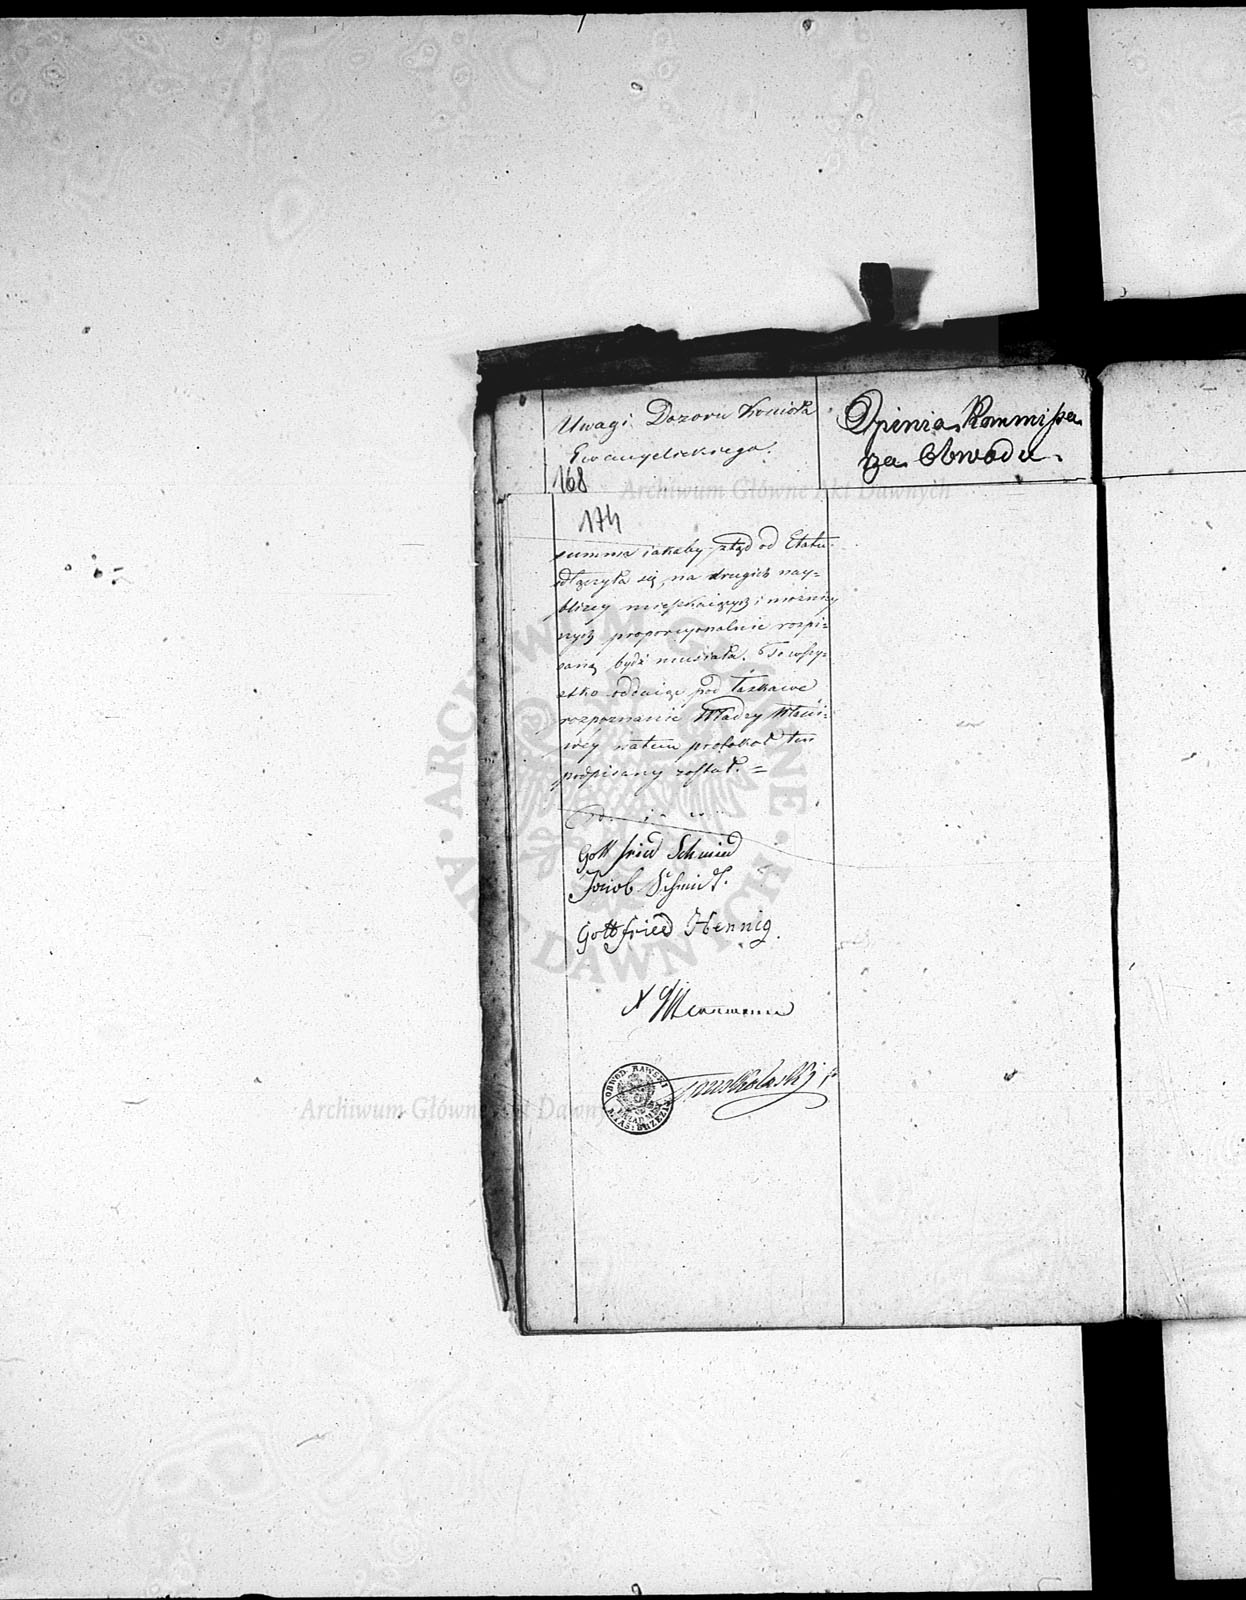 Uwagi Dozoru Kościoła
Ewangelickiego.
Opinia Kommissa
rza Obwodu.
168
174
summa iakaby ztąd od Etatu
odłączyła się, na drugich nay=
bliżey mieszkaiących i możniey
szych proporcyonalnie rozpi=
saną bydź musiała. To wszy=
stko oddaiąc pod łaskawe
rozpoznanie Władzy Właści=
wey natem protokół ten
podpisany został. =
Gottfried Schmied
Jacob Schmidt.
Gottfried Hennig.
OBWÓD RAWSKI
Archiwum Główne Akt Dawnych
Archiwum Główne Akt Dawnych
ARCHIWUM GŁÓWNE AKT DAWNYCH